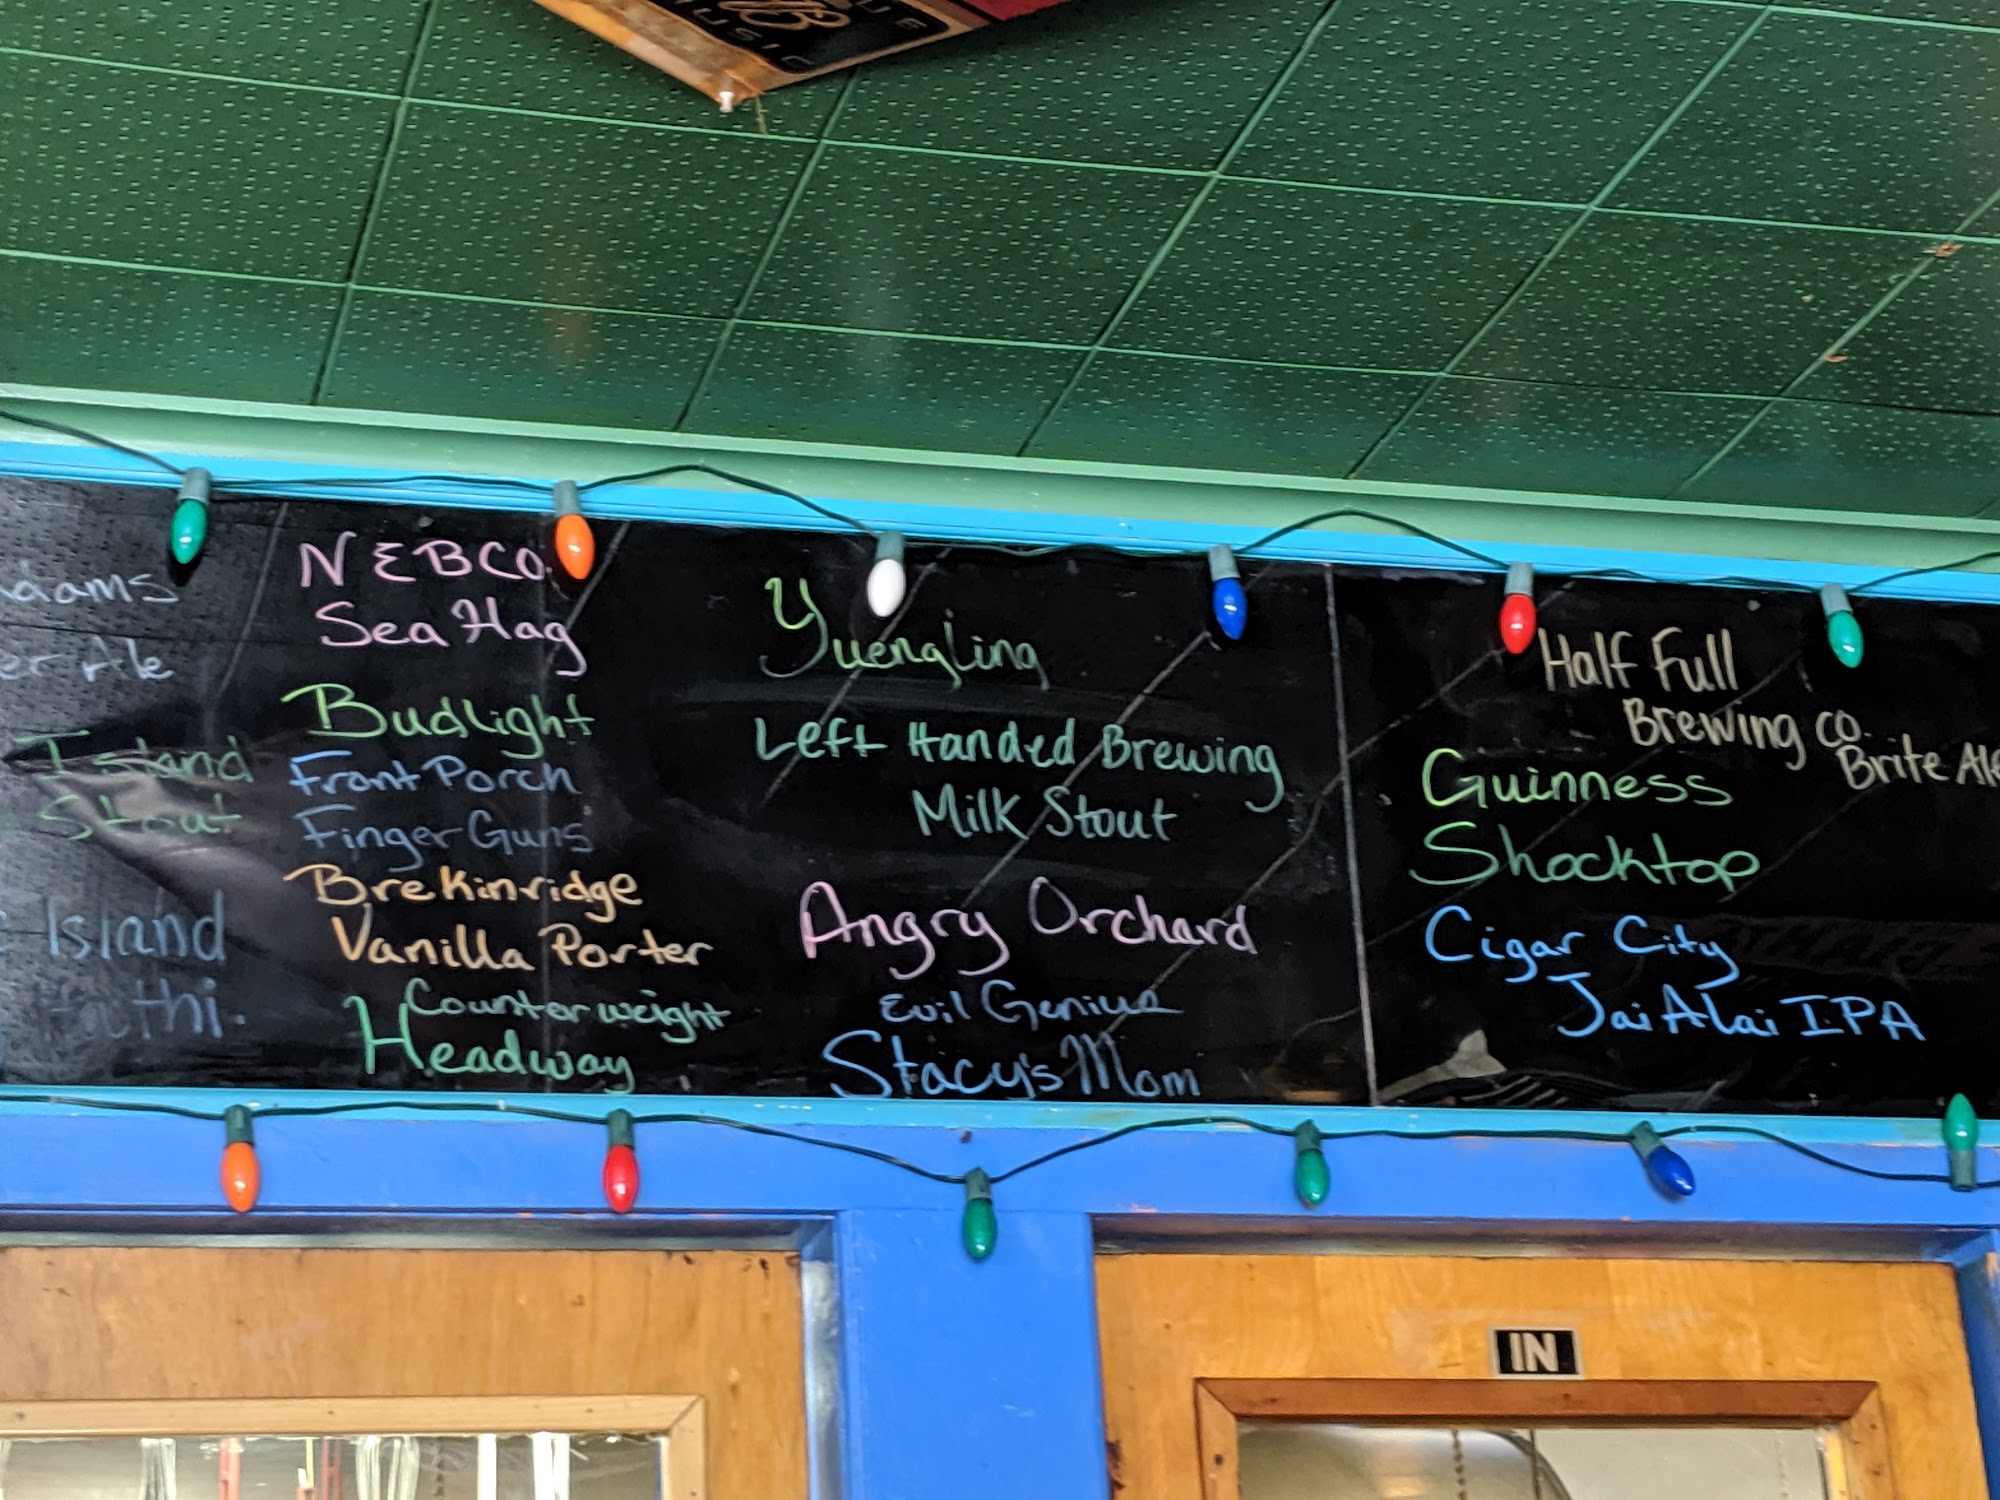 MUSIC
Ale
Island
Stout
Island
NEBCO.
Sea Hag
Budlight
Front Porch
Finger Guns
Brekinridge
Vanilla Porter
Counterweight
Headway
Yuengling
Left Handed Brewing
Milk Stout
Angry Orchard
Evil Genius
Stacy's Mom
Half Full
Brewing co.
Brite Ale
Guinness
Shocktop
Cigar City
Jai Alai IPA
IN